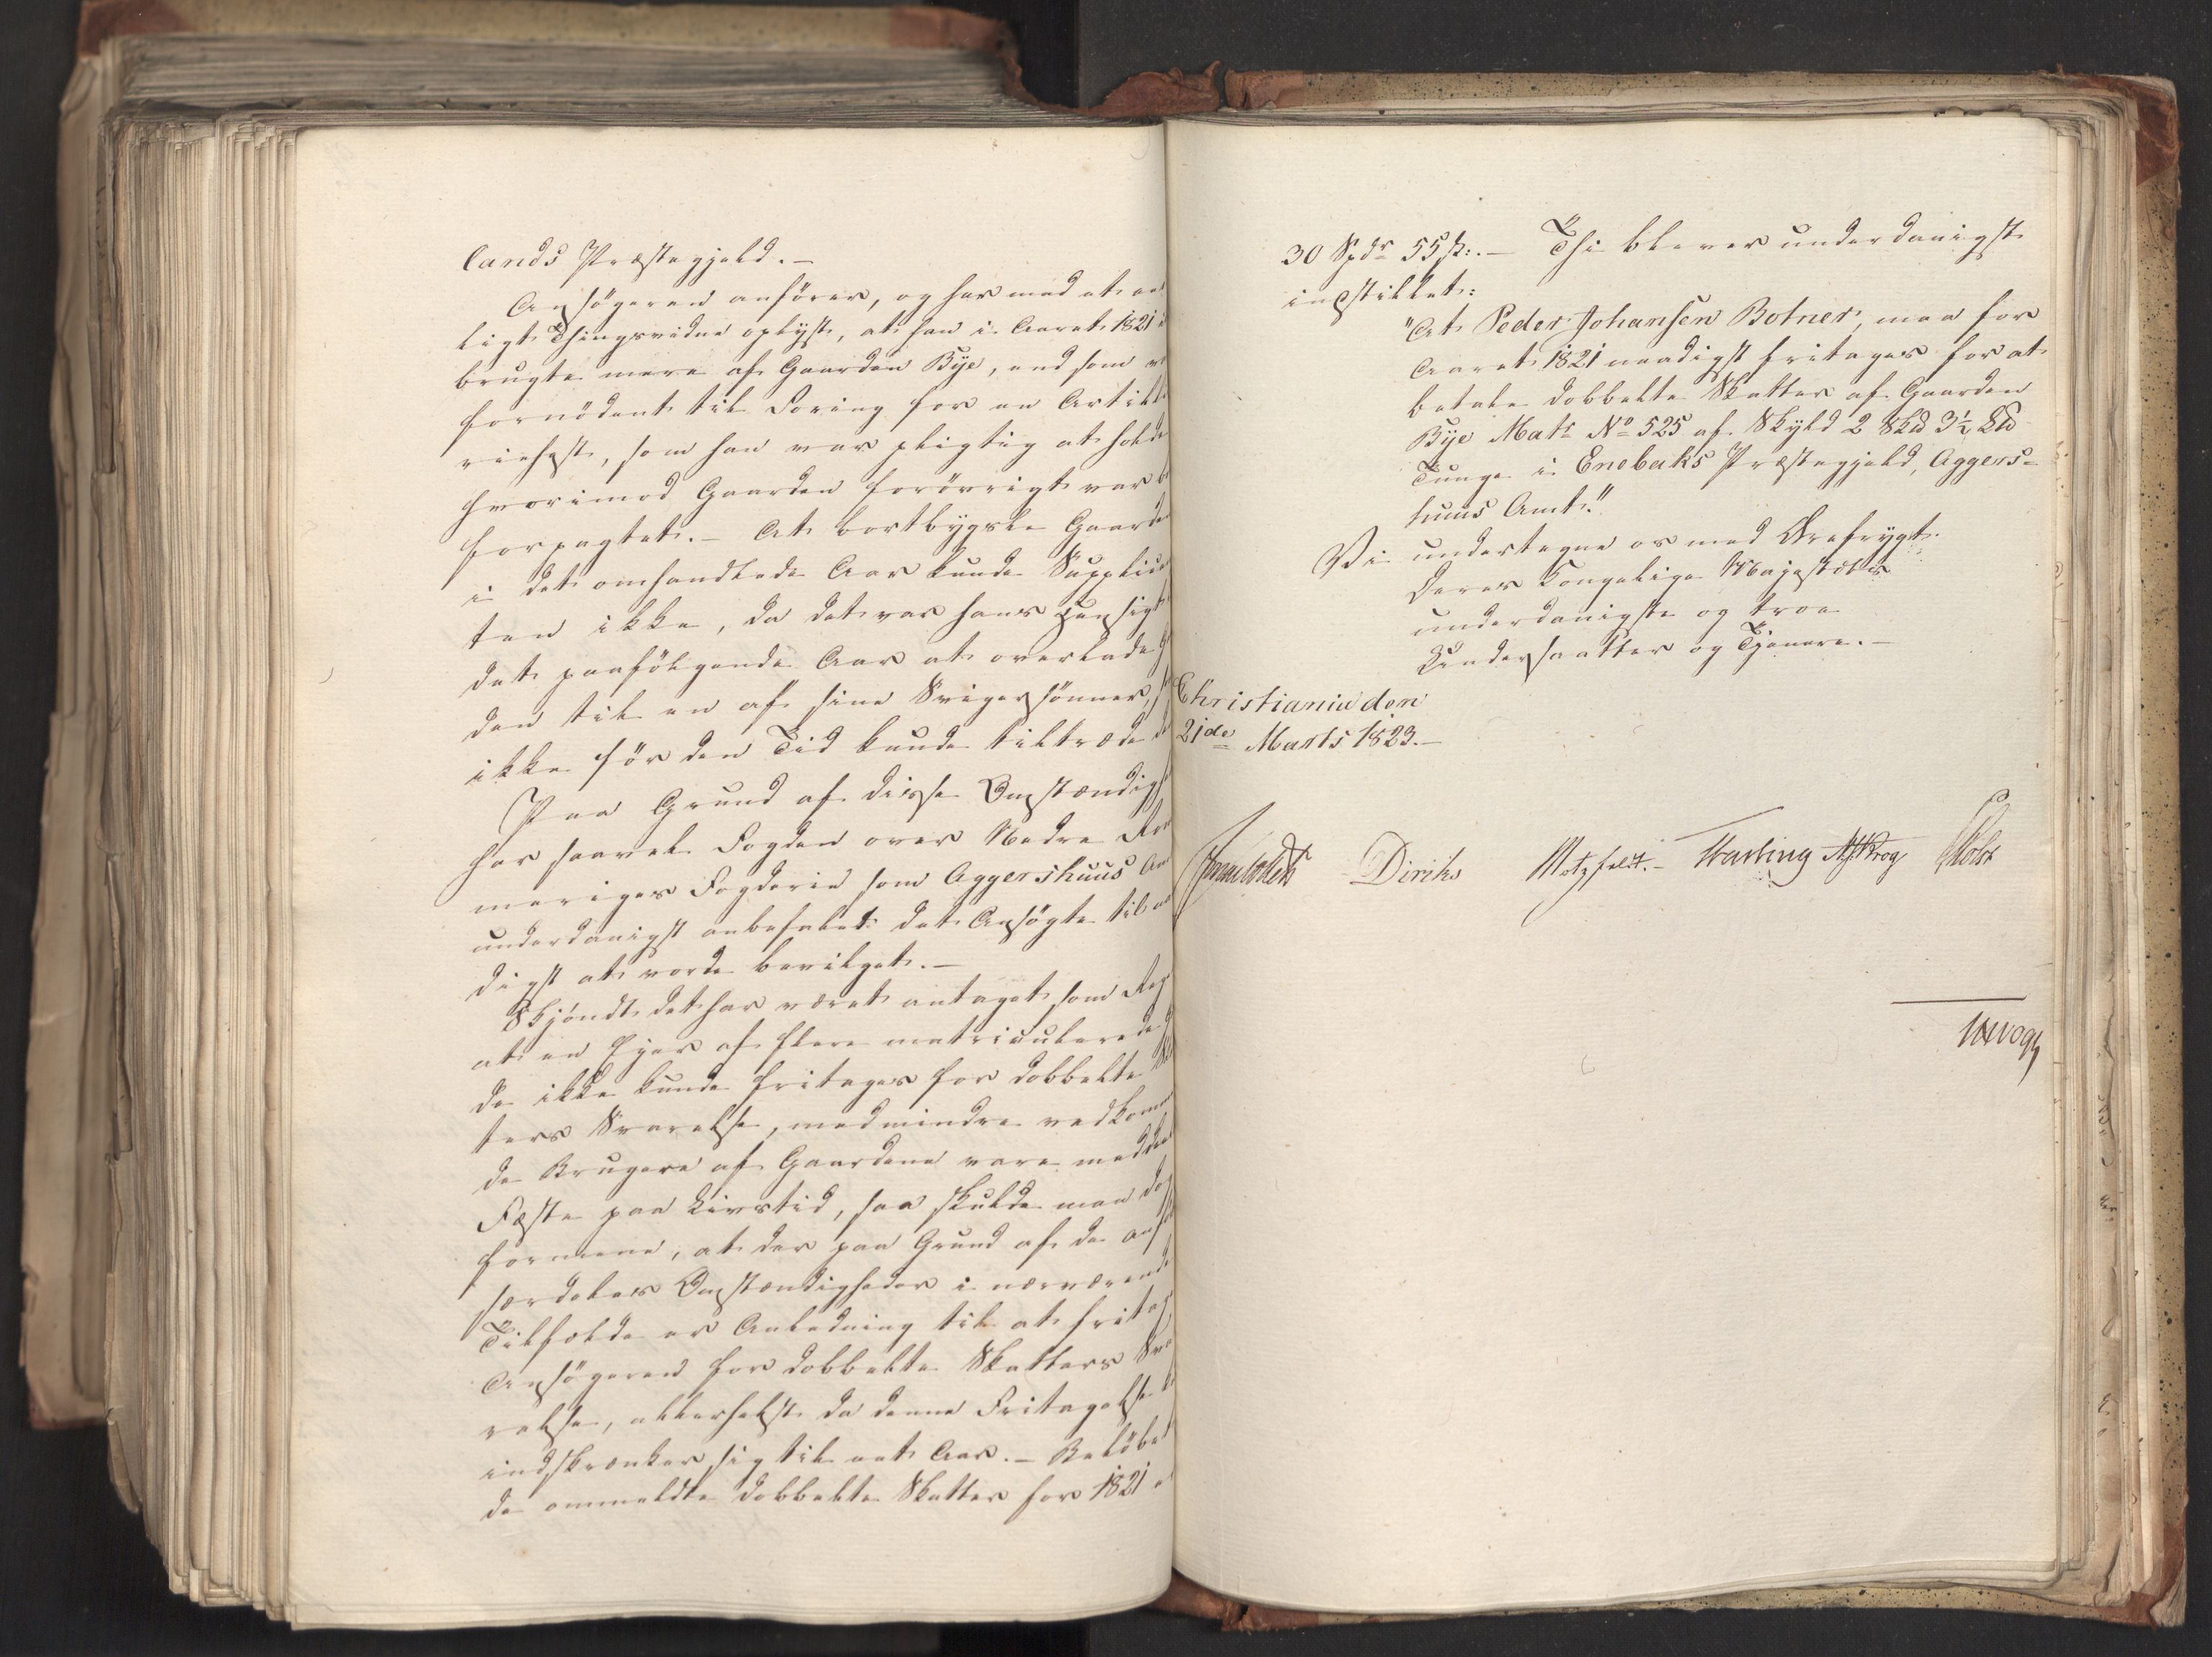 lands Præstegjeld. –
Ansøgeren anfører, og har med et
ligt Thingsvidne oplyst, at han i Aaret 1821 i
brugte mere af Gaarden Bye, end som
fornødent til Foring for en Artille
riehest, som han var pligtig at holde
hvorimod Gaarden forøvrigt var
forpagtet. – At bortbygsle Gaarde
i det omhandlede Aar kunde Supplica
ten ikke, da det var hans Hensigt
det paafølgende Aar at overlade
den til en af sine Svigersønner,
ikke før den Tid kunde tiltræde
Paa Grund af disse Omstændigh
har saavel Fogden over Nedre Rom
meriges Fogderie som Aggershuus Am
underdanigst anbefalet det Ansøgte til
digst at vorde bevilget. –
Skjøndt det har været antaget som Reg
at en Eyer af flere matriculerede
de ikke kunde fritages for dobbelte
ters Svarelse, medmindre vedkomm
de Brugere af Gaardene vare meddeel
Fæste paa Livstid, saa skulde man dog
formene, at der paa Grund af de anf
særdeles Omstændigheder i nærværende
Tilfælde er Anledning til at fritag
Ansøgeren for dobbelte Skatters Sva
relse, allerhelst da denne Fritagelse
indskrænker sig til eet Aar. – Beløbet
de ommeldte dobbelte Skatter for 1821
30 Spdr 55 ß:. – Thi bliver underdanigst
indstillet:
"At Peder Johansen Botner, maa for
Aaret 1821 naadigst fritages for at
betale dobbelte Skatter af Gaarden
Bye Matr No 525 af Skyld 2 Skd 3½ Ld
Tunge i Enebaks Præstegjeld, Aggers=
huus Amt."
Vi undertegne os med Ærefrygt.
Deres Kongelige Majestæts
underdanigste og troe
Undersaatter og Tjenere. –
Christiania den
21de Marts 1823. –
Diriks Motzfeldt. – Krog Holst